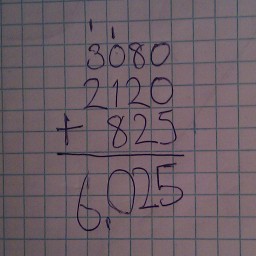 1 1
3080
2120
+ 825
6,025